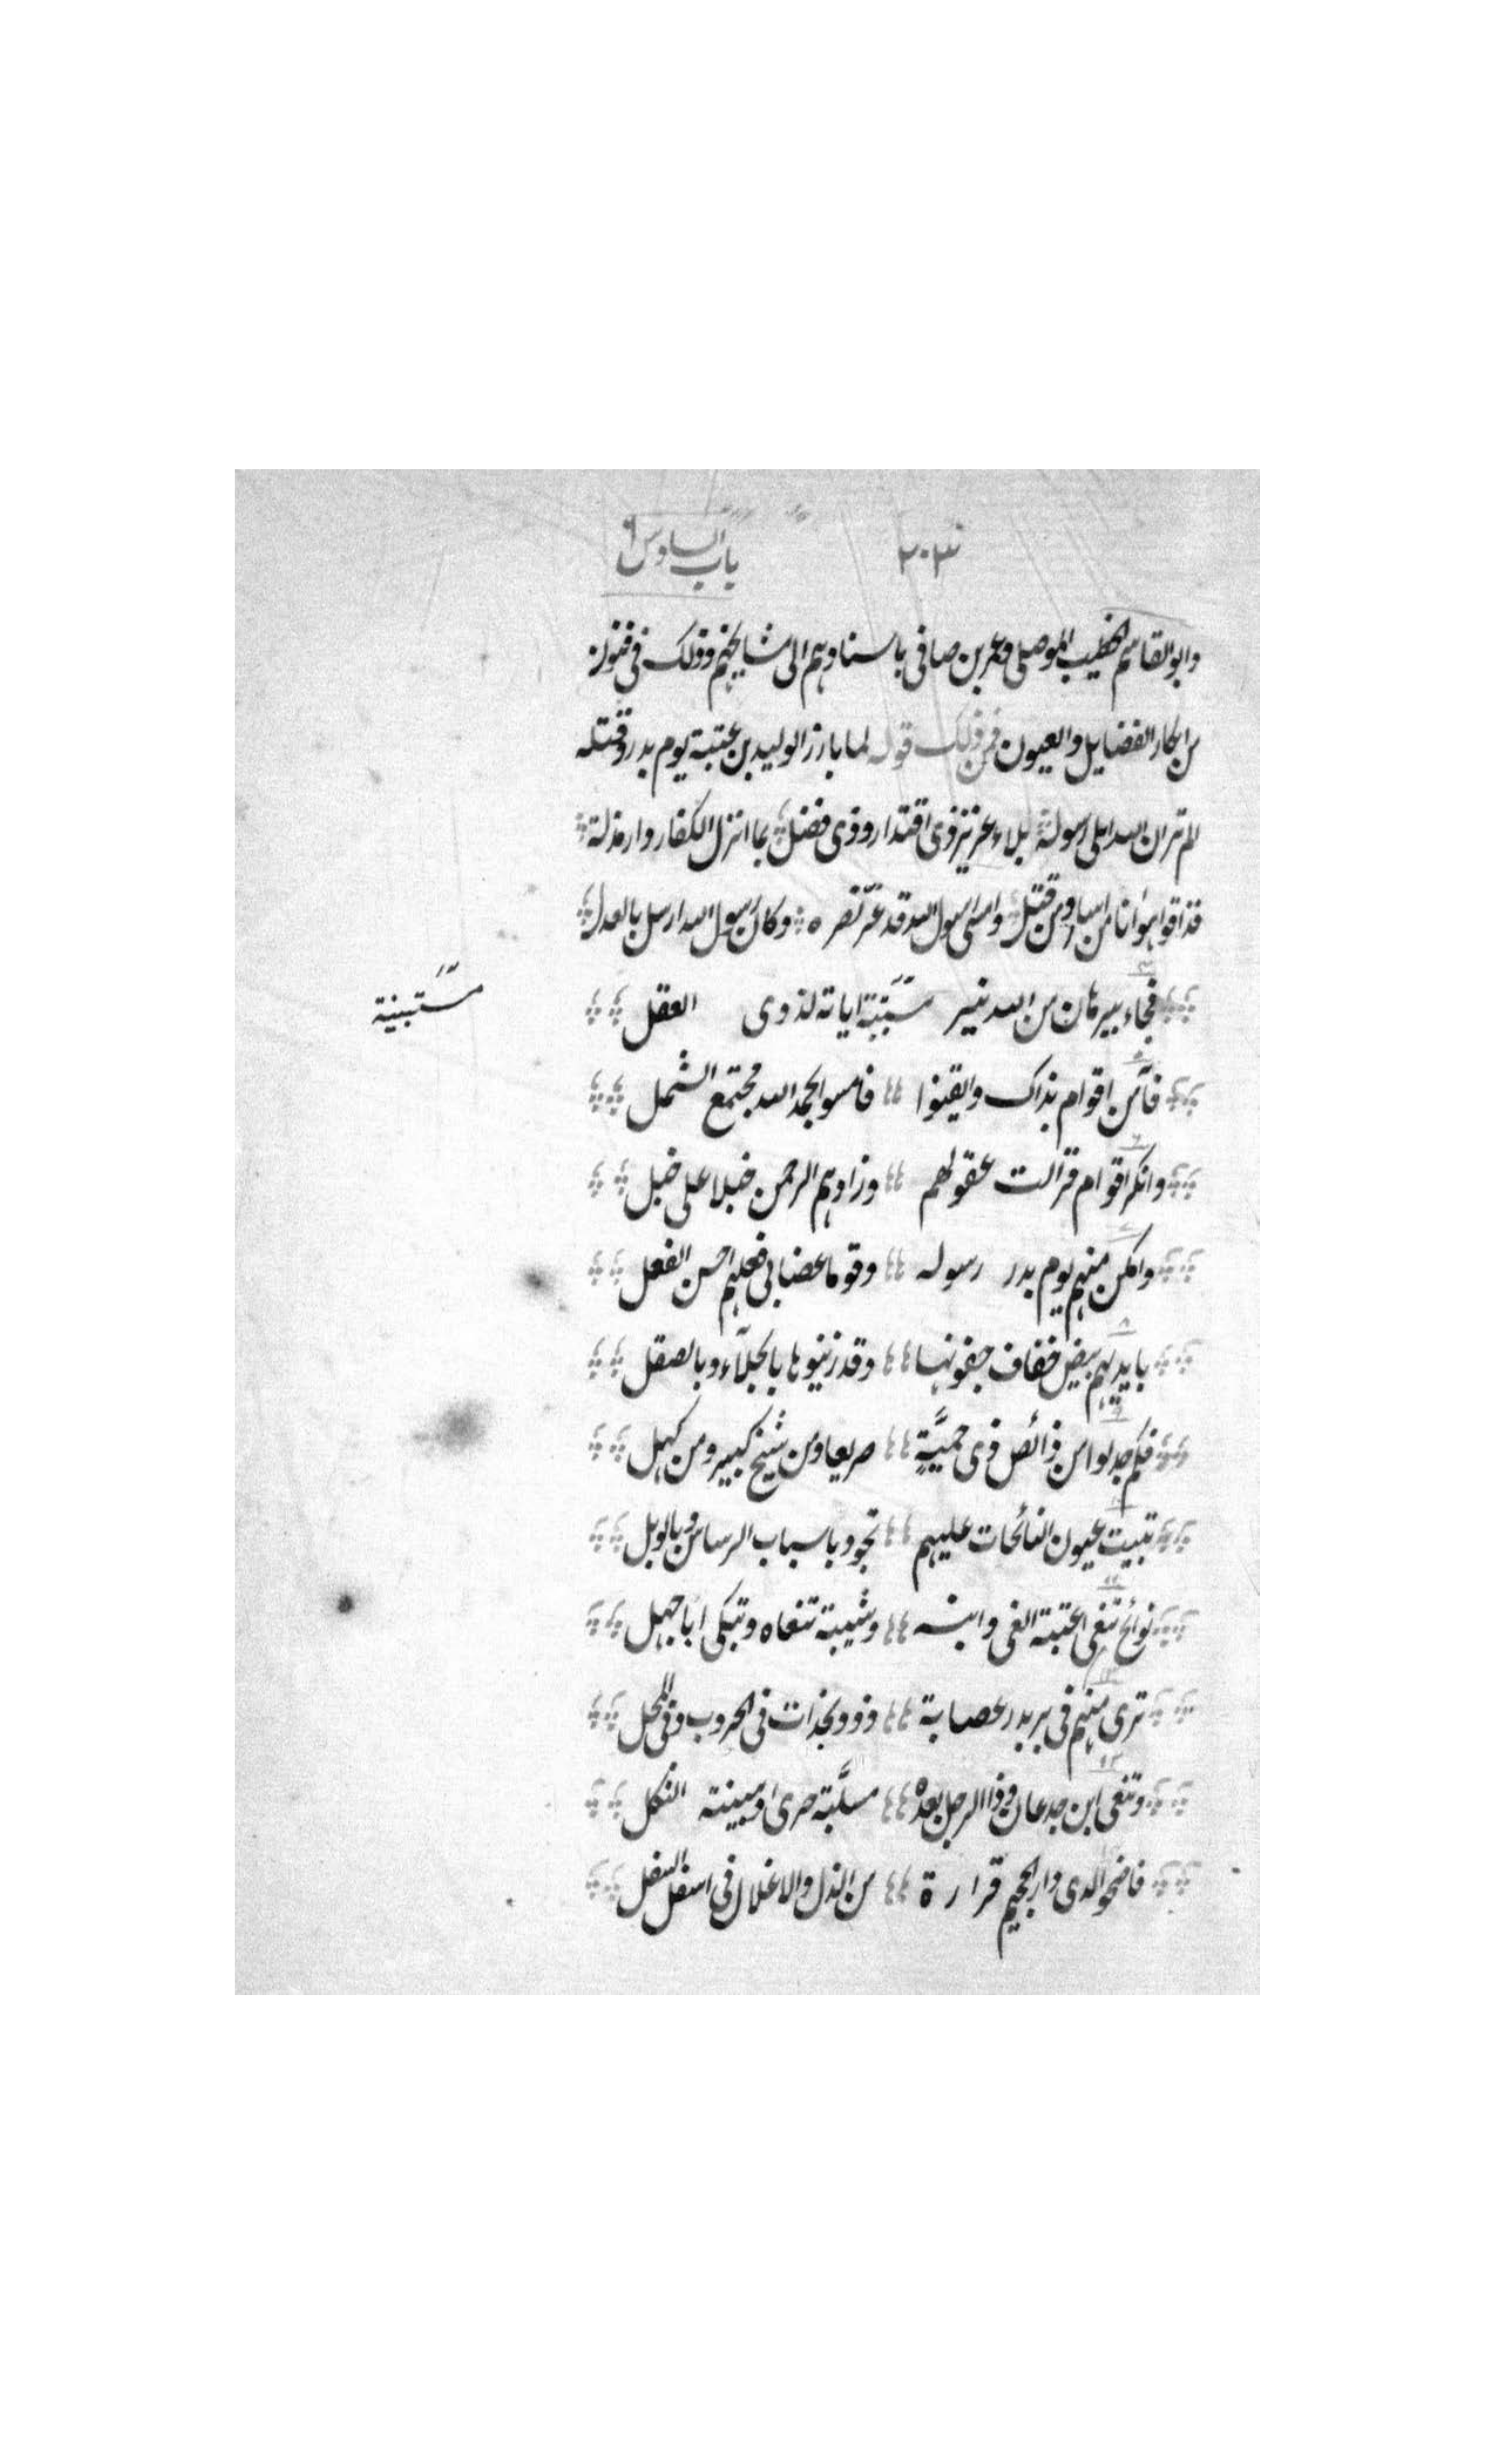 ٢٠٣ باب السادس
وابو القاسم الخطيب الموصلى وعمر بن صافى باسنادهم الى مشايخهم وذلك فى فنون
من ابكار الفضايل والعيون فمن ذلك قوله لما بارز الوليد بن عتبة يوم بدر وقتله
الم تر ان الله ابلى رسوله بلاء عزيز ذى اقتدار وذى فضل بما انزل الكفار دار مذلة
فذاقوا هوانا من اسار ومن قتل وامسى رسول الله قد عز نصره وكان رسول الله ارسل بالعدل
فجاء ببرهان من الله نير مستبينة اياته لذوى العقل
مستبينة
فآمن اقوام بذاك وايقنوا فامسوا بحمد الله مجتمع الشمل
وانكر اقوام فزالت عقولهم وزادهم الرحمن خبلا على خبل
وامكن منهم يوم بدر رسوله وقوما غضابى فعلهم احسن الفعل
بايديهم بيض خفاف جفونها وقد زينوها بالجلآء وبالصقل
فكم جدلوا من ذى حميَّةٍ صريعا ومن شيخ كبير ومن كهل
تبيت عيون النائحات عليهم تجود باسباب الرساس وبالوبل
نوائح تنعى عتبة الغى وابنه وشيبة تنعاه وتبكى ابا جهل
ترى منهم فى بير بدر عصابة ذوو نجدات فى الحروب وفى المحل
وتنعى ابن جدعان وذا الرجل بعده مسلَّبة حرى مبينة الثكل
فاضحوا لدى دار الجحيم قرارة من الذل والاغلال فى اسفل السفل